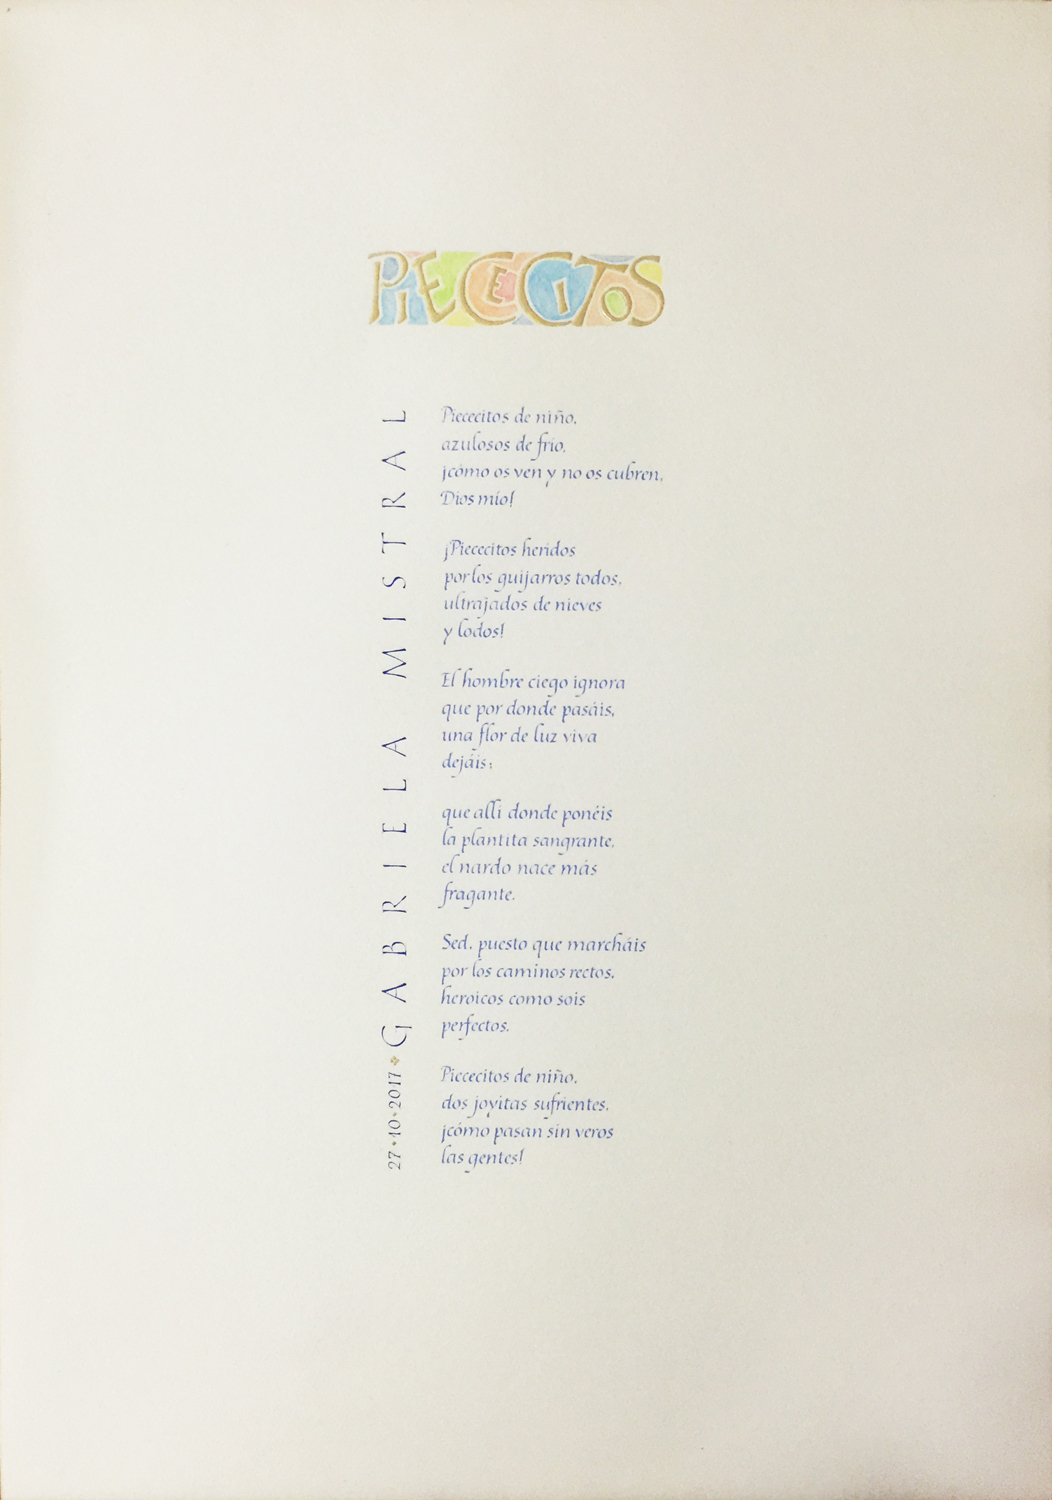 PIECECITOS
Piececitos de niño,
azulosos de frío,
¡cómo os ven y no os cubren,
Dios mío!
¡Piececitos heridos
por los guijarros todos,
ultrajados de nieves
y lodos!
El hombre ciego ignora
que por donde pasáis,
una flor de luz viva
dejáis;
que allí donde ponéis
la plantita sangrante,
el nardo nace más
fragante.
Sed, puesto que marcháis
por los caminos rectos,
heroicos como sois
perfectos.
Piececitos de niño,
dos joyitas sufrientes,
¡cómo pasan sin veros
las gentes!
27·10·2017 GABRIELA MISTRAL